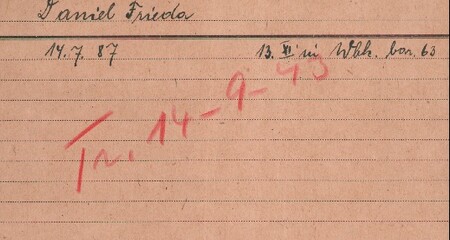 Daniel Frieda
14.7.87 13. XI in Wkh. bar. 63
Tr. 14-9-43